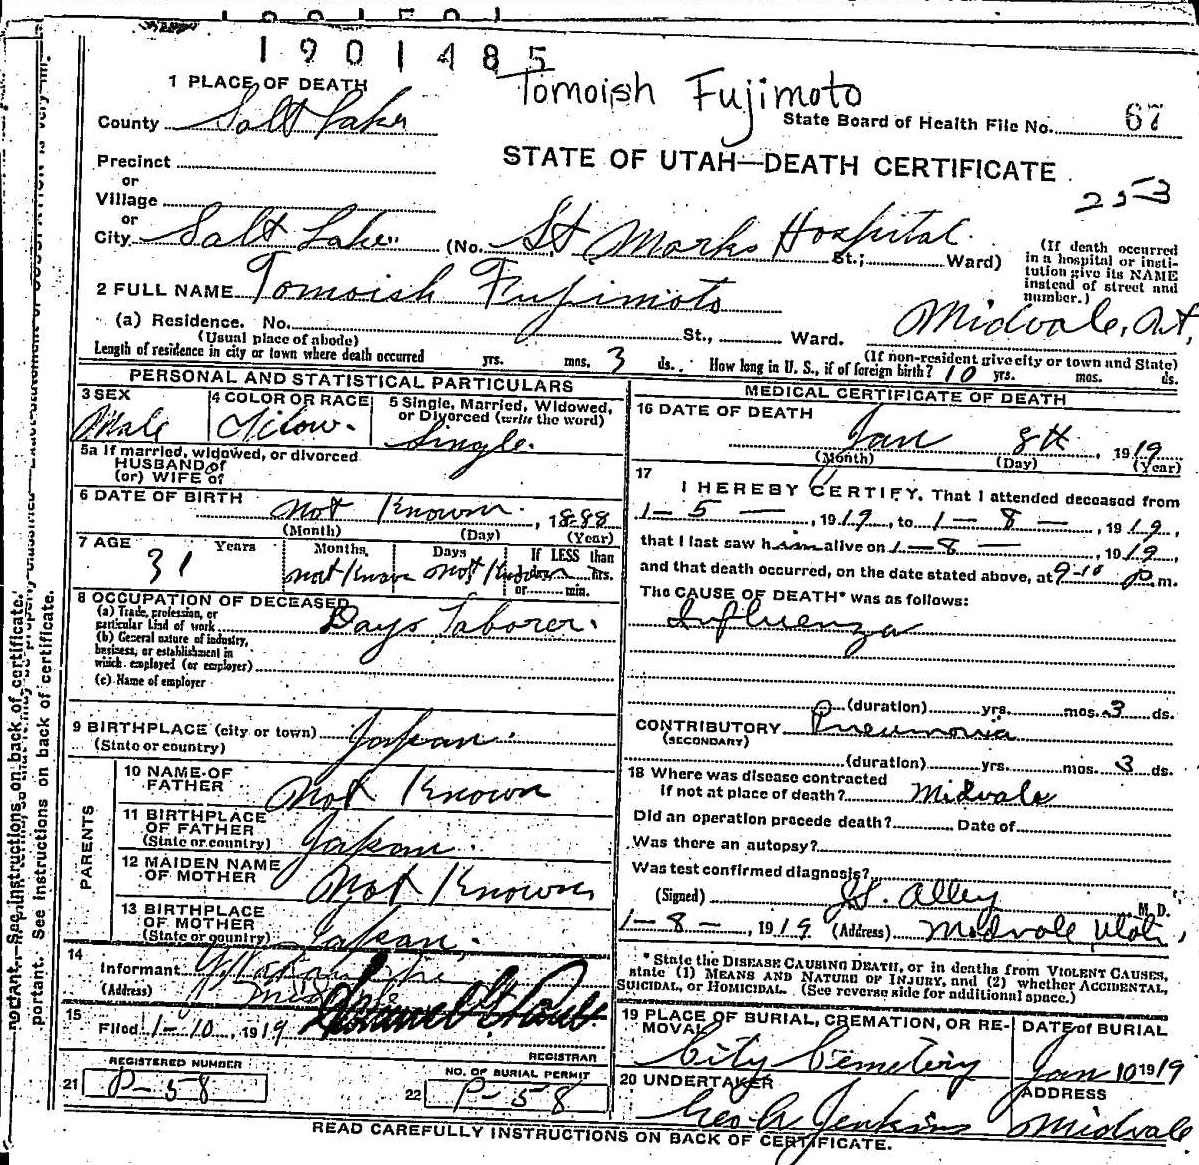 1901485
Tomoish Fujimoto
1 PLACE OF DEATH
County Salt Lake
State Board of Health File No. 67
STATE OF UTAH—DEATH CERTIFICATE
253
Precinct
or
Village
or
City Salt Lake (No. St Marks Hospital St.; Ward)
(If death occurred in a hospital or insti-
tution give its NAME
instead of street and
number.)
2 FULL NAME Tomoish Fujimoto
(a) Residence. No. St., Ward. Midvale, Ut,
(Usual place of abode)
(If non-resident give city or town and State)
Length of residence in city or town where death occurred yrs. mos. 3 ds. How long in U. S., if of foreign birth? 10 yrs. mos. ds.
PERSONAL AND STATISTICAL PARTICULARS
3 SEX
Male
4 COLOR OR RACE
5 Single, Married, Widowed,
or Divorced (write the word)
Single.
5a If married, widowed, or divorced
HUSBAND of
(or) WIFE of
6 DATE OF BIRTH
not Known, 1888
(Month) (Day) (Year)
7 AGE
31 Years
Months
not Know
Days
not Known
If LESS than
hrs.
or min.
8 OCCUPATION OF DECEASED
(a) Trade, profession, or
particular kind of work Days Laborer.
(b) General nature of industry,
business, or establishment in
which employed (or employer)
(c) Name of employer
9 BIRTHPLACE (city or town) Japan.
(State or country)
PARENTS
10 NAME OF
FATHER Not Known
11 BIRTHPLACE
OF FATHER
(State or country) Japan.
12 MAIDEN NAME
OF MOTHER Not Known
13 BIRTHPLACE
OF MOTHER
(State or country) Japan.
14
Informant
(Address) Midvale
15
Filed 1-10, 1919
REGISTRAR
REGISTERED NUMBER
21 P-58
NO. OF BURIAL PERMIT
22 P-58
MEDICAL CERTIFICATE OF DEATH
16 DATE OF DEATH
Jan 8th, 1919
(Month) (Day) (Year)
17
I HEREBY CERTIFY, That I attended deceased from
1-5-, 1919, to 1-8-, 1919,
that I last saw him alive on 1-8-, 1919,
and that death occurred, on the date stated above, at 9-10 p.m.
The CAUSE OF DEATH* was as follows:
Influenza
(duration) yrs. mos. 3 ds.
CONTRIBUTORY Pneumonia
(SECONDARY)
(duration) yrs. mos. 3 ds.
18 Where was disease contracted
If not at place of death? Midvale
Did an operation precede death? Date of
Was there an autopsy?
Was test confirmed diagnosis?
(Signed) Alley M. D.
1-8-, 1919 (Address) Midvale Utah,
* State the DISEASE CAUSING DEATH, or in deaths from VIOLENT CAUSES,
state (1) MEANS AND NATURE OF INJURY, and (2) whether ACCIDENTAL,
SUICIDAL, or HOMICIDAL. (See reverse side for additional space.)
19 PLACE OF BURIAL, CREMATION, OR RE-
MOVAL
City Cemetery
DATE of BURIAL
Jan 10 1919
20 UNDERTAKER
Geo A Jenkins
ADDRESS
Midvale
READ CAREFULLY INSTRUCTIONS ON BACK OF CERTIFICATE.
portant. See instructions on back of certificate.